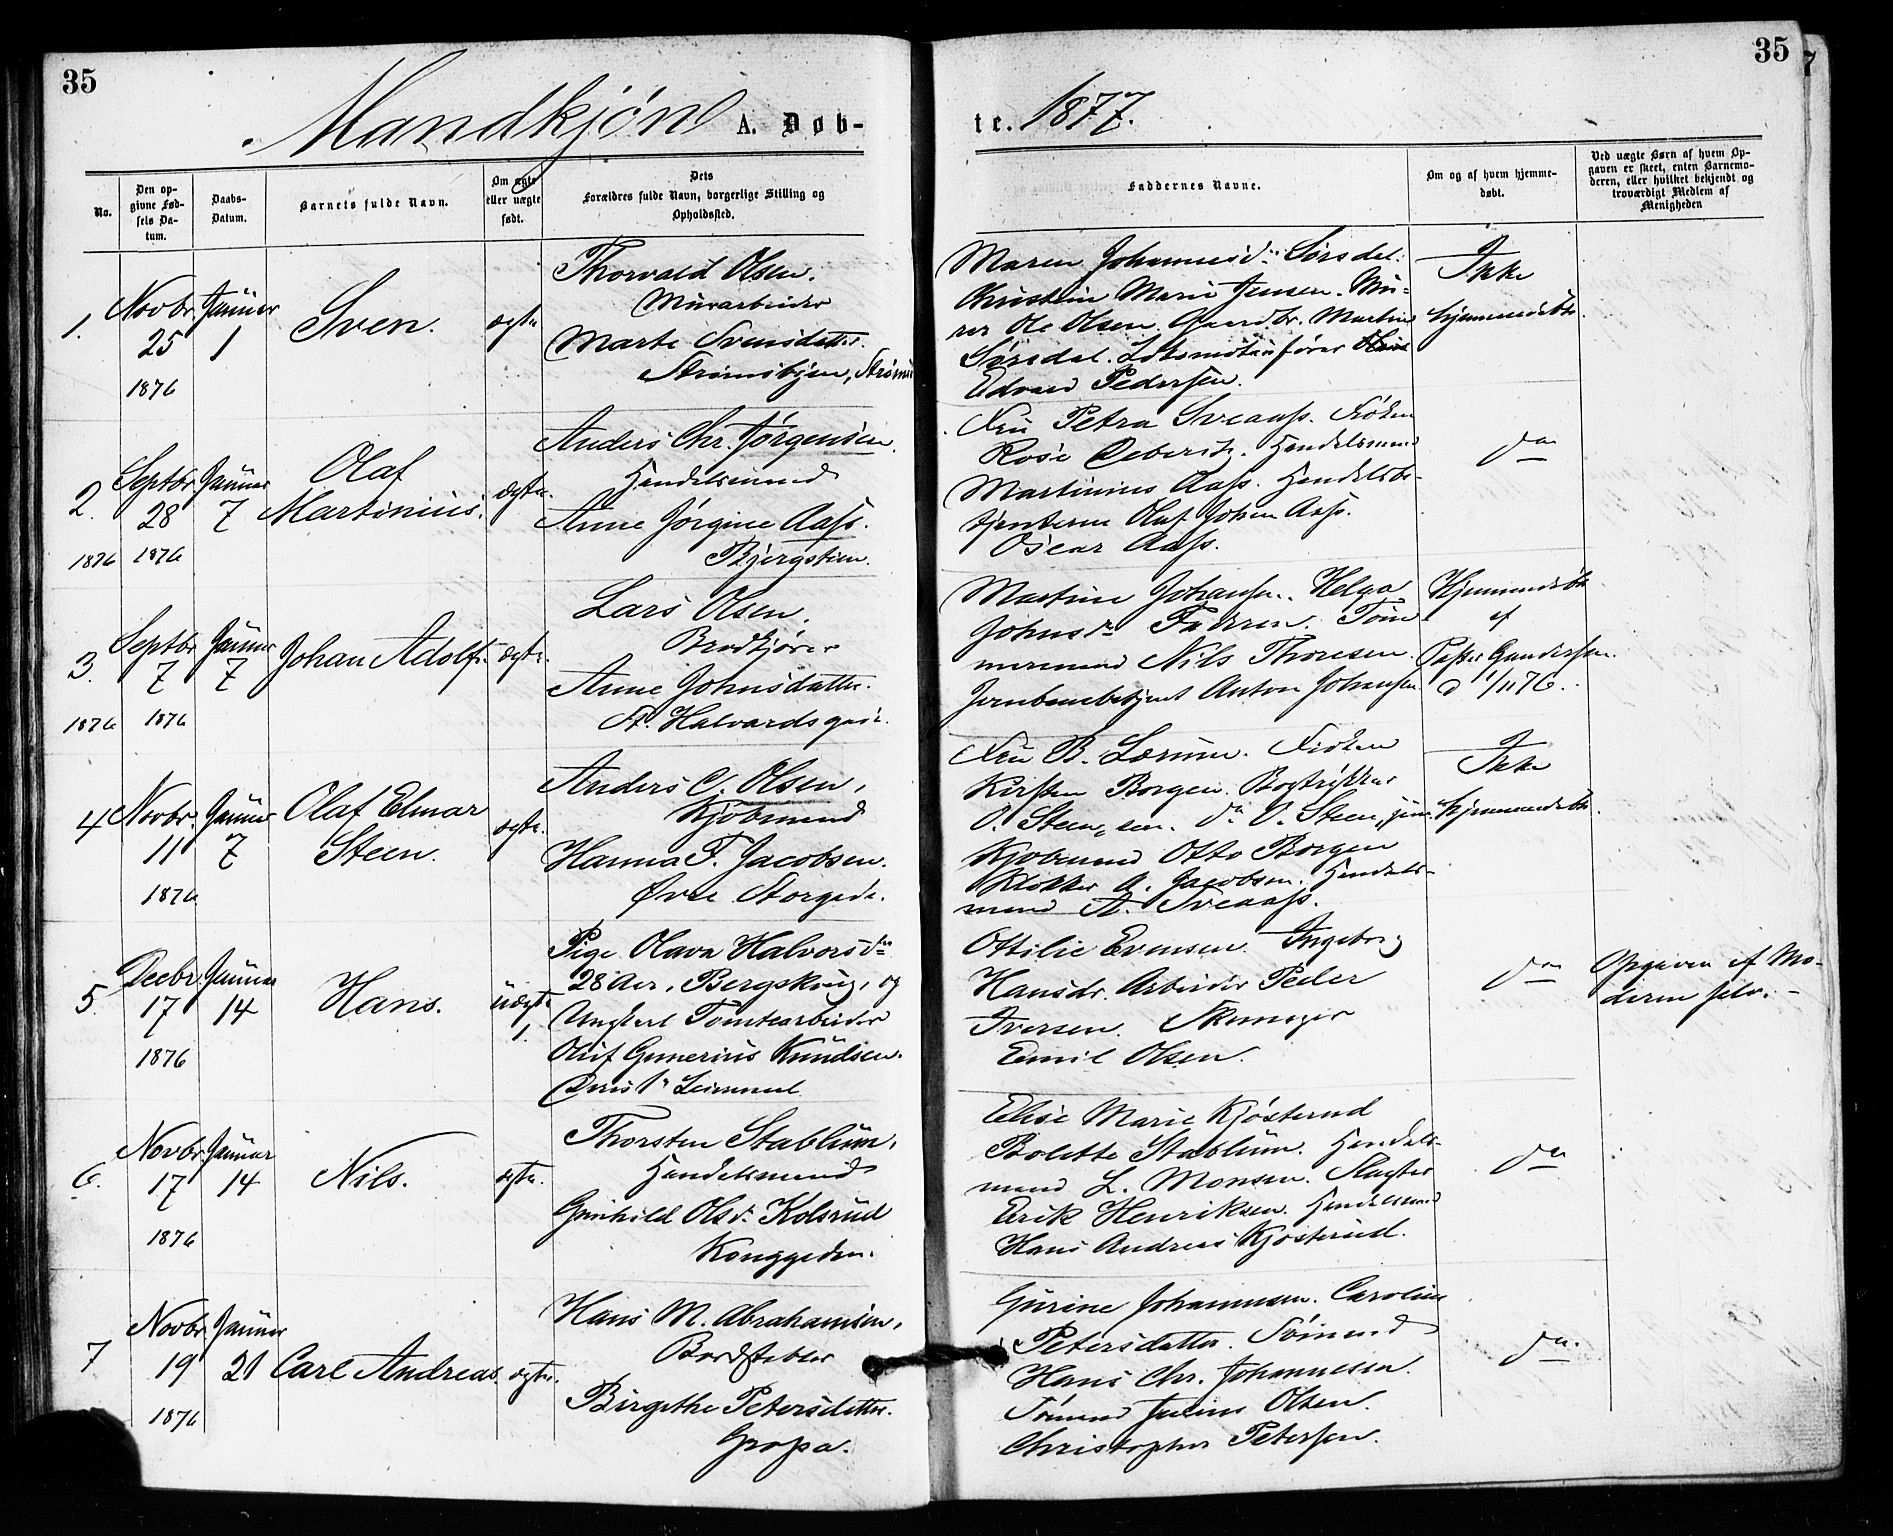 35
35
Mandkjön A. Døb-
te. 1877.
No.
Den op-
givne Fød-
sels Da-
tum.
Daabs-
Datum.
Barnets fulde Navn.
Om ægte
eller uægte
født.
Dets
Forældres fulde Navn, borgerlige Stilling og
Opholdssted.
Faddernes Navne.
Om og af hvem hjemme-
døbt.
Ved uægte Børn af hvem Op-
gaven er skeet, enten Barnemo-
deren, eller hvilket bekjendt og
troværdigt Medlem af
Menigheden
1.
Novbr.
25
1876
Januar
1
Sven.
ægte
Thorvald Olsen.
Murarbeider
Marte Svensdatter.
Strømsbyen,
Maren Johannesd. Sørsdel.
Christine Marie Jensen. Mu-
rer Ole Olsen. Gaardbr. Martin
Sørsdal. Lokomotivfører
Edvard Pedersen.
Ikke
hjemmedøbt.
2.
1876
Septbr.
28
1876
Januar
7
Olaf
Martinius.
ægte.
Anders Chr. Jørgensen.
Handelsmand
Anne Jørgine Aass.
Bjergstien.
Fru Petra Sveaass. Frøken
Rosa Deberitz. Handelsmand
Martinius Aass. Handelsbe-
tjenterne Olaf Johan Aass.
Oscar Aass.
do
3.
1876
Septbr.
7
1876
Januar
7
Johan Adolf.
ægte.
Lars Olsen.
Brødkjører
Anne Johnsdatter.
St. Halvardsgade.
Martine Johansen. Helga
Johnsdr Tøm
mermand Nils Thoresen.
Jernbanebetjent Anton Johansen
Hjemmedøbt
af
Pastor Gundersen.
d 1/11 76.
4
Novbr.
11
1876
Januar
7
Olaf Elmar
Steen.
ægte.
Anders C. Olsen,
Kjøbmand
Hanna F. Jacobsen.
Øvre Storgade.
Fru B. Frøken
Kirsten Borgen. Bogtrykker
O. Steen, sen. do O. Steen, jun.
Kjøbmand Otto Borgen
Klokker A. Jacobsen. Handels-
mand A. Sveaass.
Ikke
hjemmedøbt.
5.
Decbr.
17
1876
Januar
14
Hans.
uægte
1.
Pige Olava Halvorsdr
28 Aar, Bergskoug, og
Ungkarl Tomtearbeider
Oluf Gunerius Knudsen.
Ottilie Evensen. Ingeborg
Hansdr. Arbeider Peder
Iversen. Skomager
Emil Olsen.
do
Opgaven af Mo-
deren selv. -
6.
Novbr.
17
1876
Januar
14
Nils.
ægte.
Thorsten Stablum,
Handelsmand
Gunhild Olsd. Kolsrud
Konggaden.
Elise Marie Kjøsterud
Bolette Stablum. Handels-
mand L. Monsen. Slagter
Erik Henriksen. Handelsmand
Hans Andreas Kjøsterud.
do
7
Novbr.
19
1876
Januar
21
Carl Andreas.
ægte.
Hans M. Abrahamsen,
Bordstabler
Birgethe Petersdatter.
Gropa.
Gurine Johannesen. Caroline
Petersdatter. Sømand
Hans Chr. Johannesen.
Sømand Julius Olsen.
Christopher Petersen.
do.